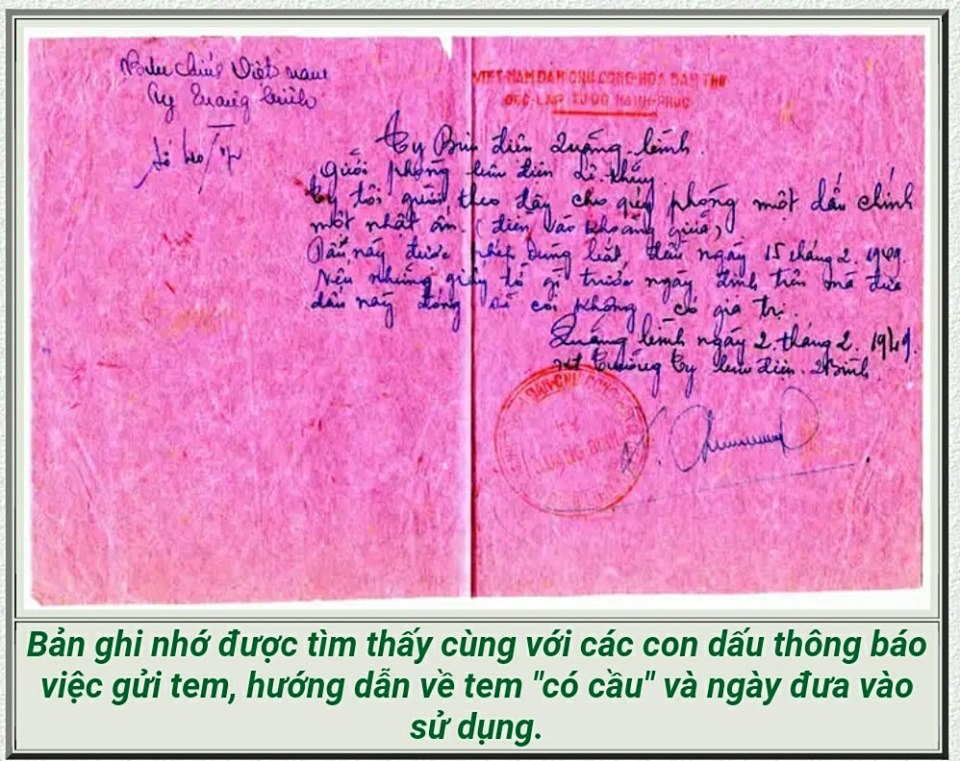 Bưu chính Việt nam
Ty Quảng bình
Số
VIET-NAM DÂN CHU CONG HOA
DOC-LAP TU-DO HANH-PHUC
Ty Bưu điện Quảng-bình
Gửi phòng bưu điện
Ty tôi gửi theo đây cho quý phòng một dấu chính
một nhật ấn (điền vào khoảng giữa)
Dấu này được phép dùng bắt đầu ngày 15 tháng 2. 1949.
Nếu những giấy tờ gì trước ngày định trên mà đưa
dấu này đóng sẽ coi không có giá trị.
Quảng bình ngày 2 tháng 2. 1949.
Trưởng Ty bưu điện. QBình
TY
QUANG BINH
Bản ghi nhớ được tìm thấy cùng với các con dấu thông báo
việc gửi tem, hướng dẫn về tem "có cầu" và ngày đưa vào
sử dụng.